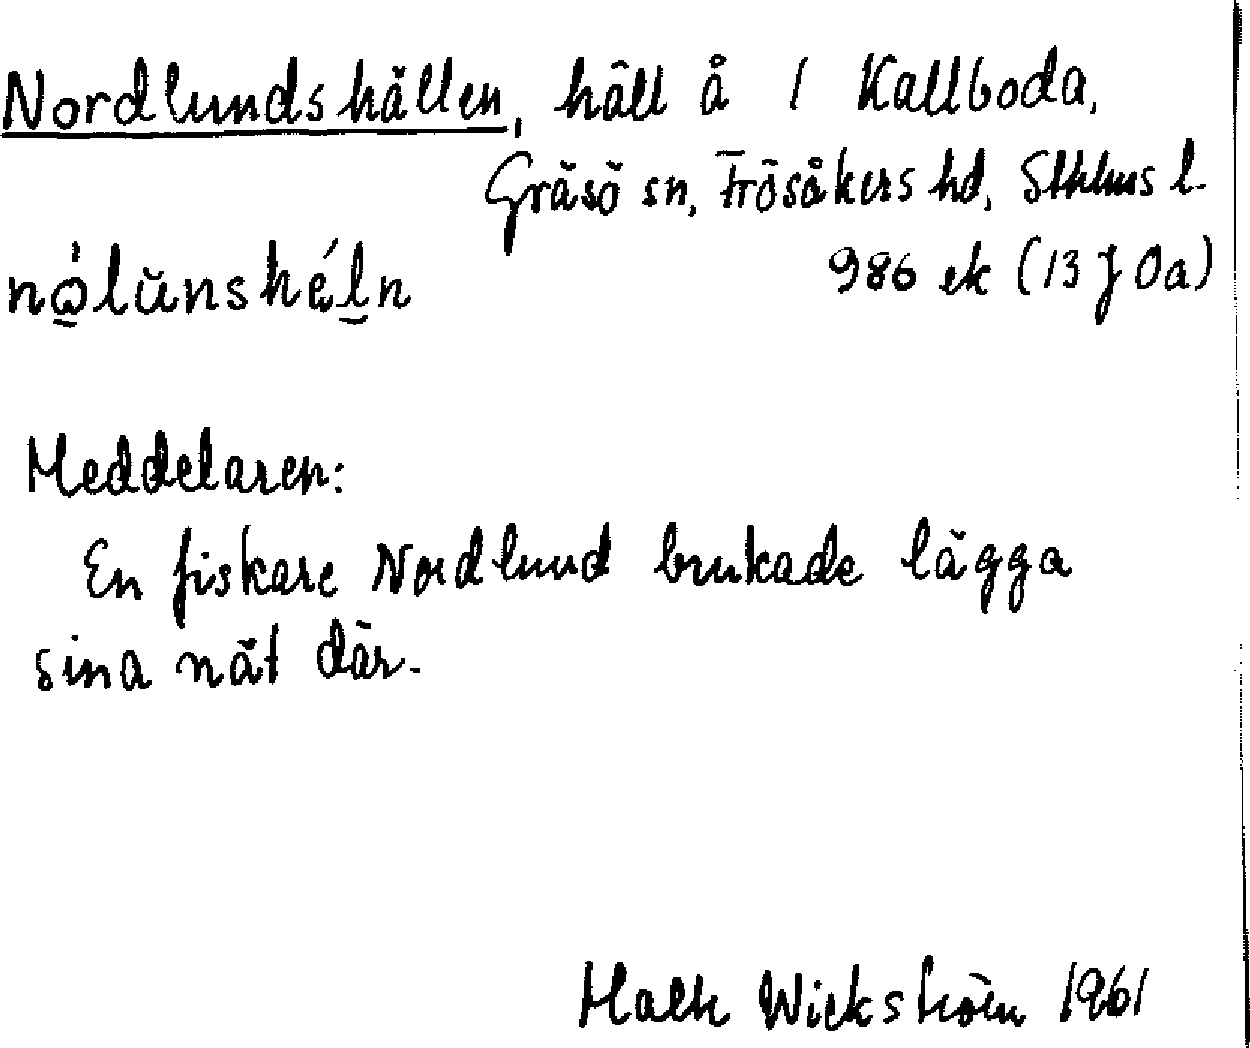 Nordlundshällen, häll å 1 Kallboda,
Gräsö sn, Frösåkers hd, Sthlms l.
nὼlŭnshéln 986 ek (13 J 0a)
Meddelaren:
En fiskare Nordlund brukade lägga
sina nät där.
Wickström 1961